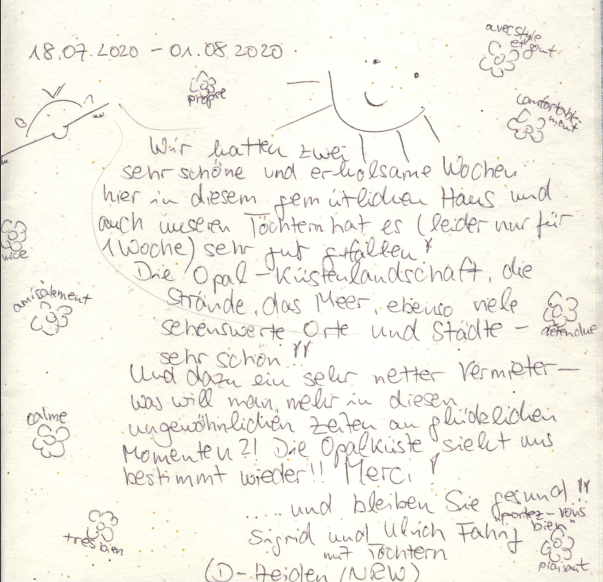 18.07.2020 - 01.08.2020
avec style
et goût
propre
comfortable-
ment
Wir hatten zwei
sehr schöne und erholsame Wochen
hier in diesem gemütlichen Haus und
auch unseren Töchtern hat es (leider nur für
1 Woche) sehr gut gefallen!
nice
Die Opal-Küstenlandschaft, die
amicalement
Strände, das Meer, ebenso viele
sehenswerte Orte und Städte -
détendue
sehr schön!!
Und dazu ein sehr netter Vermieter -
was will man mehr in diesen
calme
ungewöhnlichen Zeiten an glücklichen
Momenten?! Die Opalküste sieht uns
bestimmt wieder!! Merci!
..... und bleiben Sie gesund!!
"portez-vous
bien"
très bien
Sigrid und Ulrich
mit Töchtern
plaisant
(D-Heiden/NRW)